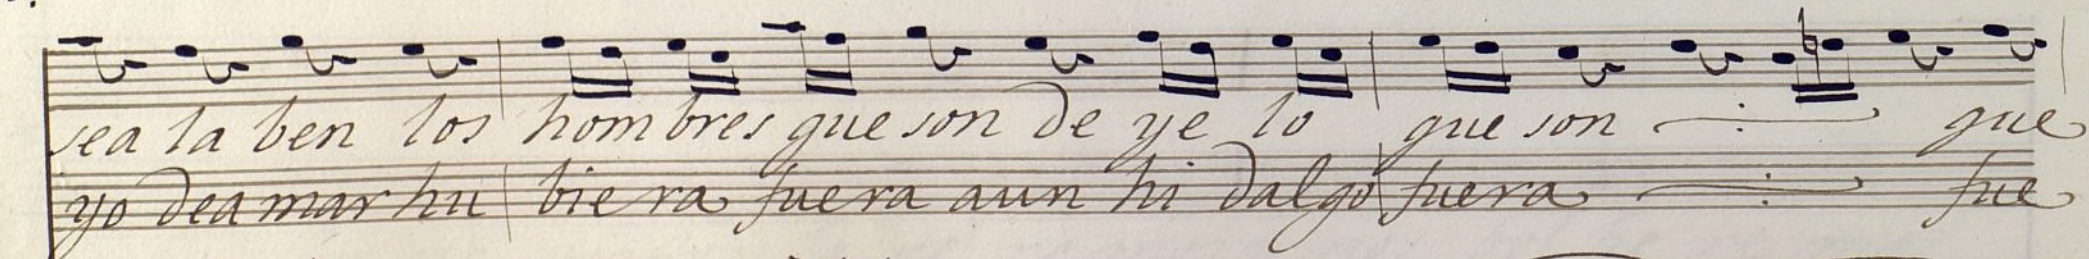 sea la ben los hom bres que son de ye lo que son que
yo dea mar hu bie ra fuera aun hi dalgo fuera fue